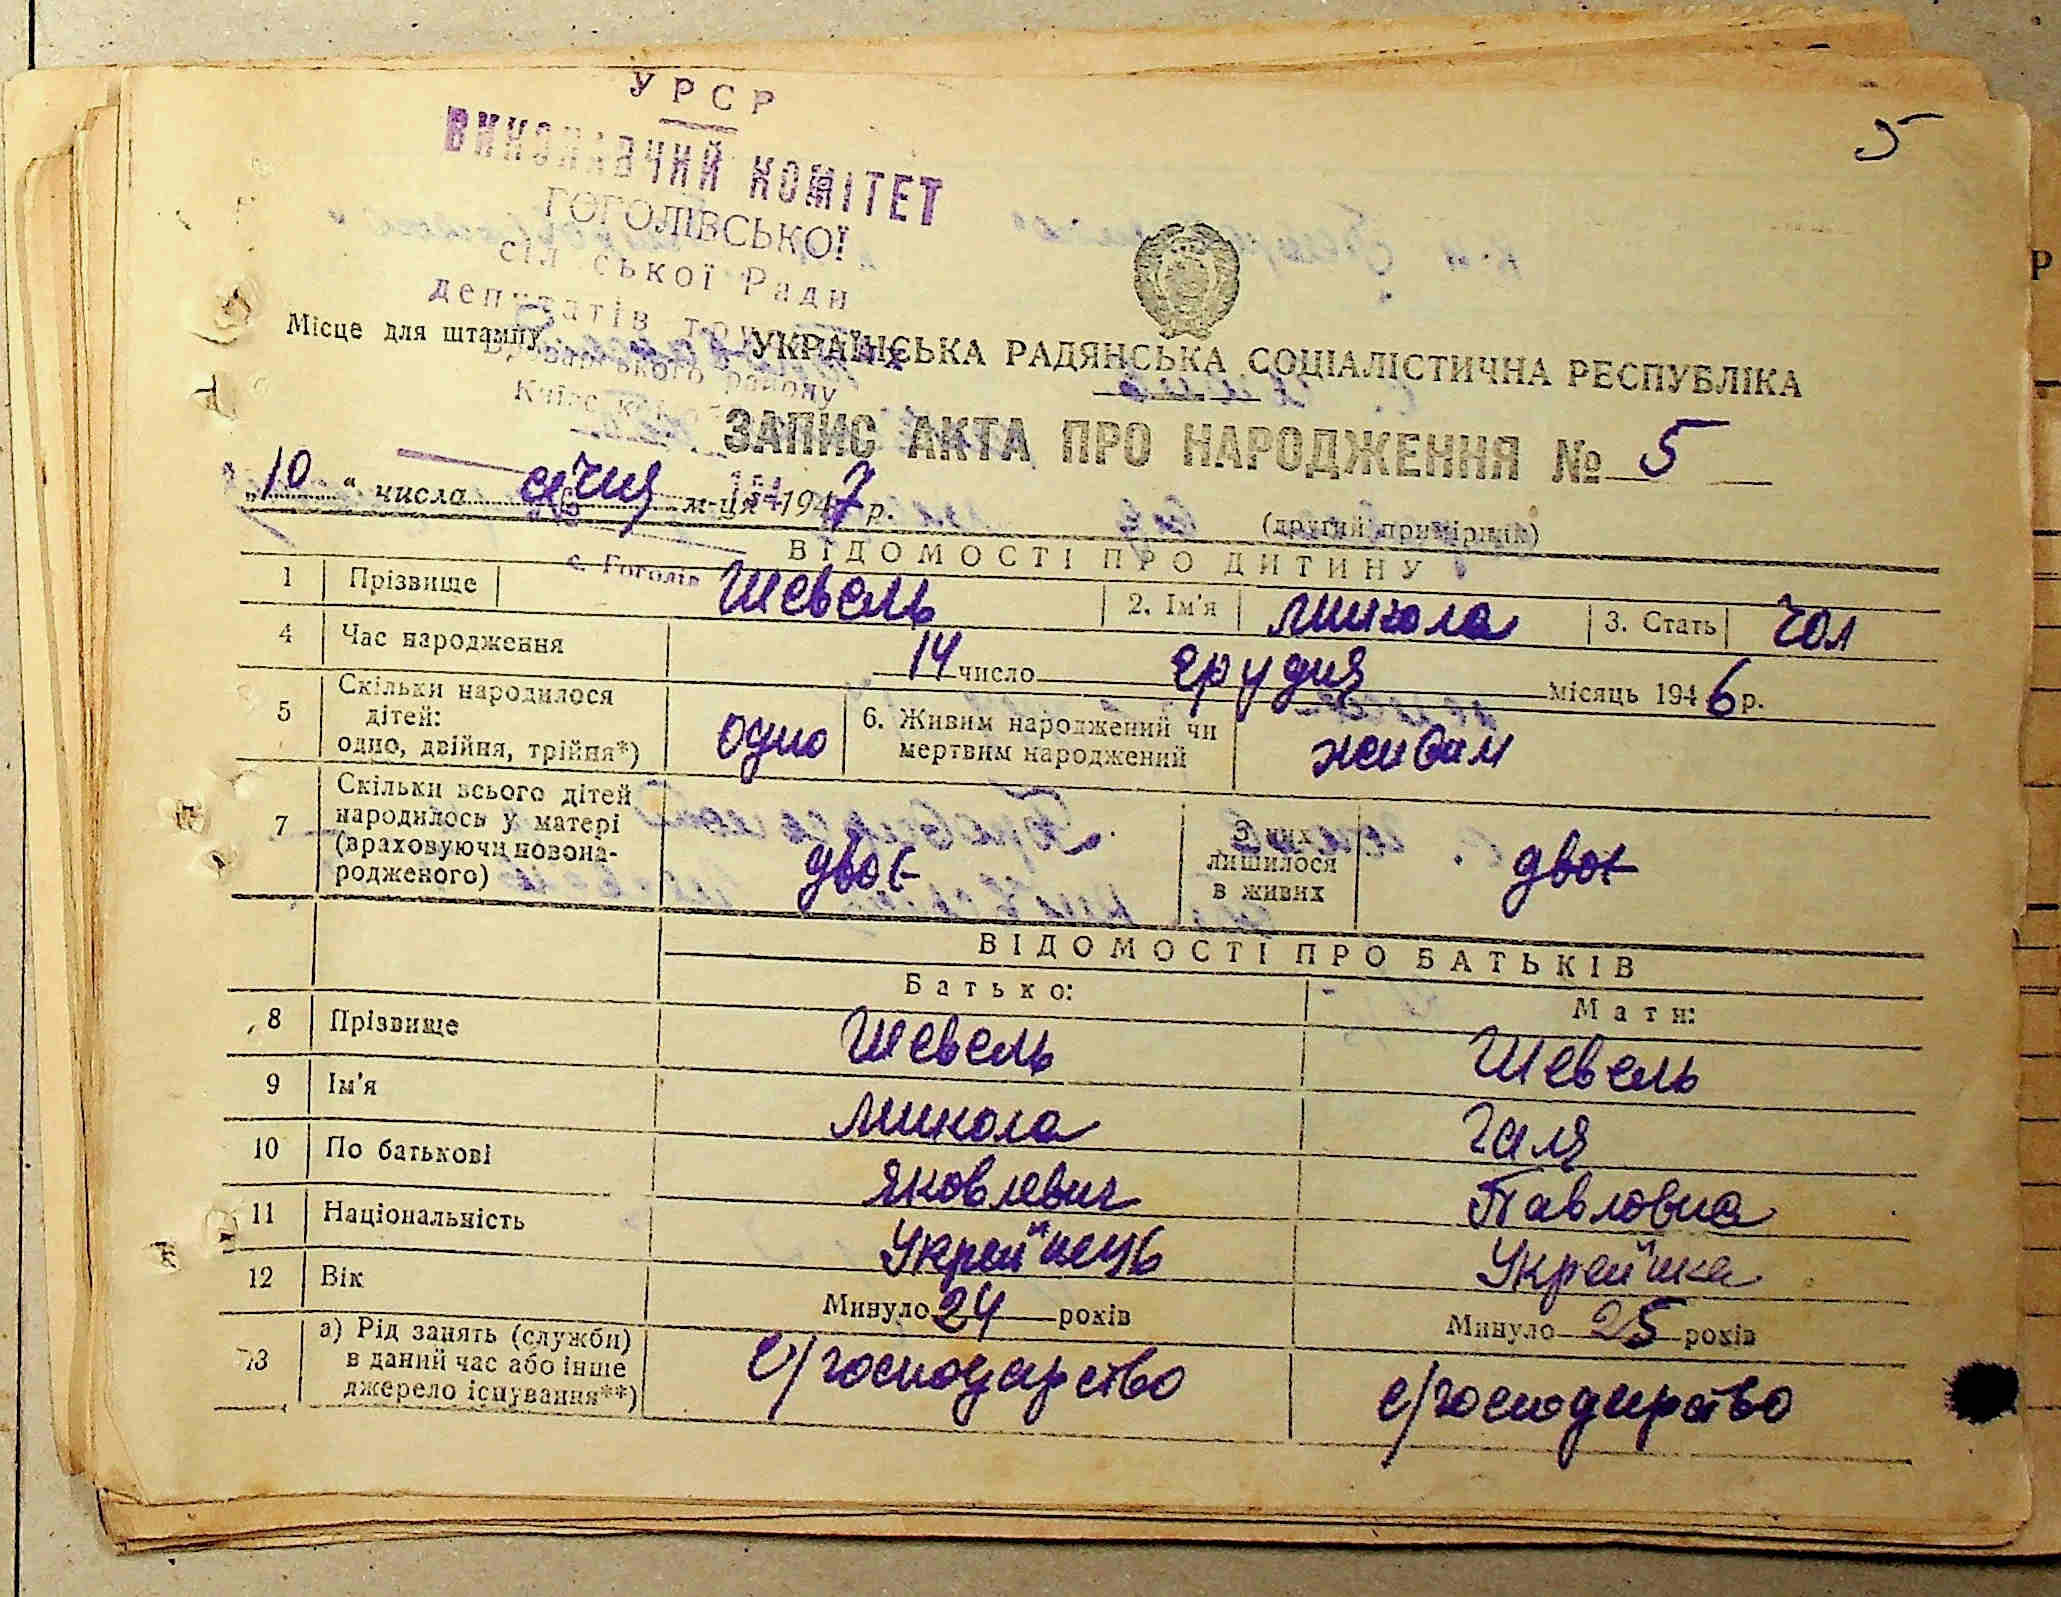 5
УРСР
ВИКОНАВЧИЙ КОМІТЕТ
ГОГОЛІВСЬКОЇ
сіл ської Ради
депутатів
Місце для штампу
УКРАЇНСЬКА РАДЯНСЬКА СОЦІАЛІСТИЧНА РЕСПУБЛІКА
району
ЗАПИС АКТА ПРО НАРОДЖЕННЯ № 5
„10“ числа січня м-ця 1947 р.
(другий примірник)
с. Гоголів
ВІДОМОСТІ ПРО ДИТИНУ
1 Прізвище Шевель 2. Ім'я Микола 3. Стать чол
4 Час народження 14 число грудня місяць 1946 р.
5 Скільки народилося дітей: одно, двійня, трійня*) одно 6. Живим народжений чи мертвим народжений живим
7 Скільки всього дітей народилось у матері (враховуючи новонародженого) двоє З них лишилося в живих двоє
ВІДОМОСТІ ПРО БАТЬКІВ
Батько: Мати:
8 Прізвище Шевель Шевель
9 Ім'я Микола Галя
10 По батькові Яковлевич Павловна
11 Національність Украйнець Украйнка
12 Вік Минуло 24 років Минуло 25 років
13 а) Рід занять (служби) в даний час або інше джерело існування**) с/господарство с/господарство